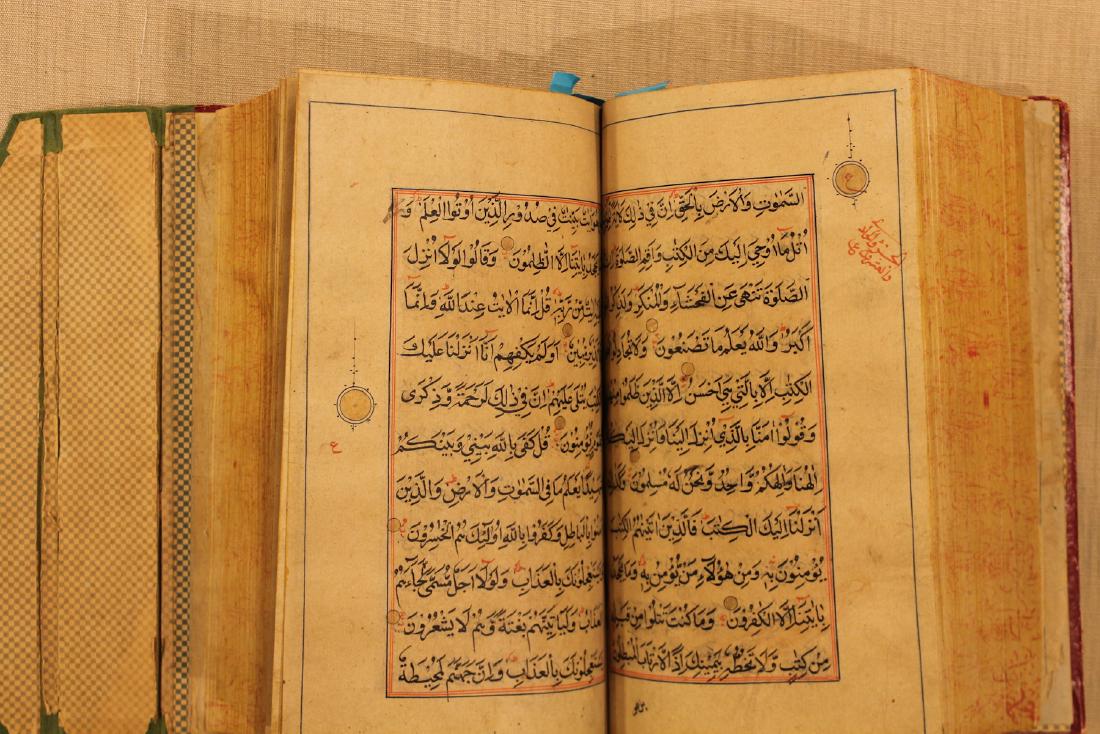 السَّمٰوٰتِ وَالْاَرْضَ بِالْحَقِّ اِنَّ فِيْ ذٰلِكَ
اُتْلُ مَا اُوْحِيَ اِلَيْكَ مِنَ الْكِتٰبِ وَاَقِمِ الصَّلٰوةَ
الصَّلٰوةَ تَنْهٰى عَنِ الْفَحْشَآءِ وَالْمُنْكَرِ وَلَذِكْرُ
اَكْبَرُ وَاللّٰهُ يَعْلَمُ مَا تَصْنَعُوْنَ وَلَا تُجَادِلُوْا
الْكِتٰبِ اِلَّا بِالَّتِيْ هِيَ اَحْسَنُ اِلَّا الَّذِيْنَ ظَلَمُوْا
وَقُوْلُوْا اٰمَنَّا بِالَّذِيْ اُنْزِلَ اِلَيْنَا وَاُنْزِلَ اِلَيْكُمْ
اِلٰهُنَا وَاِلٰهُكُمْ وَاحِدٌ وَّنَحْنُ لَهٗ مُسْلِمُوْنَ
اَنْزَلْنَا اِلَيْكَ الْكِتٰبَ فَالَّذِيْنَ اٰتَيْنٰهُمُ الْكِتٰبَ
يُؤْمِنُوْنَ بِهٖ وَمِنْ هٰؤُلَآءِ مَنْ يُّؤْمِنُ بِهٖ وَمَا
بِاٰيٰتِنَا اِلَّا الْكٰفِرُوْنَ وَمَا كُنْتَ تَتْلُوْا مِنْ
مِنْ كِتٰبٍ وَّلَا تَخُطُّهٗ بِيَمِيْنِكَ اِذًا لَّارْتَابَ الْمُبْطِلُوْنَ
ع
بَيِّنٰتٌ فِيْ صُدُوْرِ الَّذِيْنَ اُوْتُوا الْعِلْمَ وَمَا
يَجْحَدُ بِاٰيٰتِنَا اِلَّا الظّٰلِمُوْنَ وَقَالُوْا لَوْلَا اُنْزِلَ
مِّنْ رَّبِّهٖ قُلْ اِنَّمَا الْاٰيٰتُ عِنْدَ اللّٰهِ وَاِنَّمَا
مُّبِيْنٌ اَوَلَمْ يَكْفِهِمْ اَنَّا اَنْزَلْنَا عَلَيْكَ
يُتْلٰى عَلَيْهِمْ اِنَّ فِيْ ذٰلِكَ لَرَحْمَةً وَّذِكْرٰى
يُّؤْمِنُوْنَ قُلْ كَفٰى بِاللّٰهِ بَيْنِيْ وَبَيْنَكُمْ
شَهِيْدًا يَعْلَمُ مَا فِي السَّمٰوٰتِ وَالْاَرْضِ وَالَّذِيْنَ
بِالْبَاطِلِ وَكَفَرُوْا بِاللّٰهِ اُولٰئِكَ هُمُ الْخٰسِرُوْنَ
بِالْعَذَابِ وَلَوْلَا اَجَلٌ مُّسَمًّى لَّجَآءَهُمُ
الْعَذَابُ وَلَيَاْتِيَنَّهُمْ بَغْتَةً وَّهُمْ لَا يَشْعُرُوْنَ
يَسْتَعْجِلُوْنَكَ بِالْعَذَابِ وَاِنَّ جَهَنَّمَ لَمُحِيْطَةٌ
ع